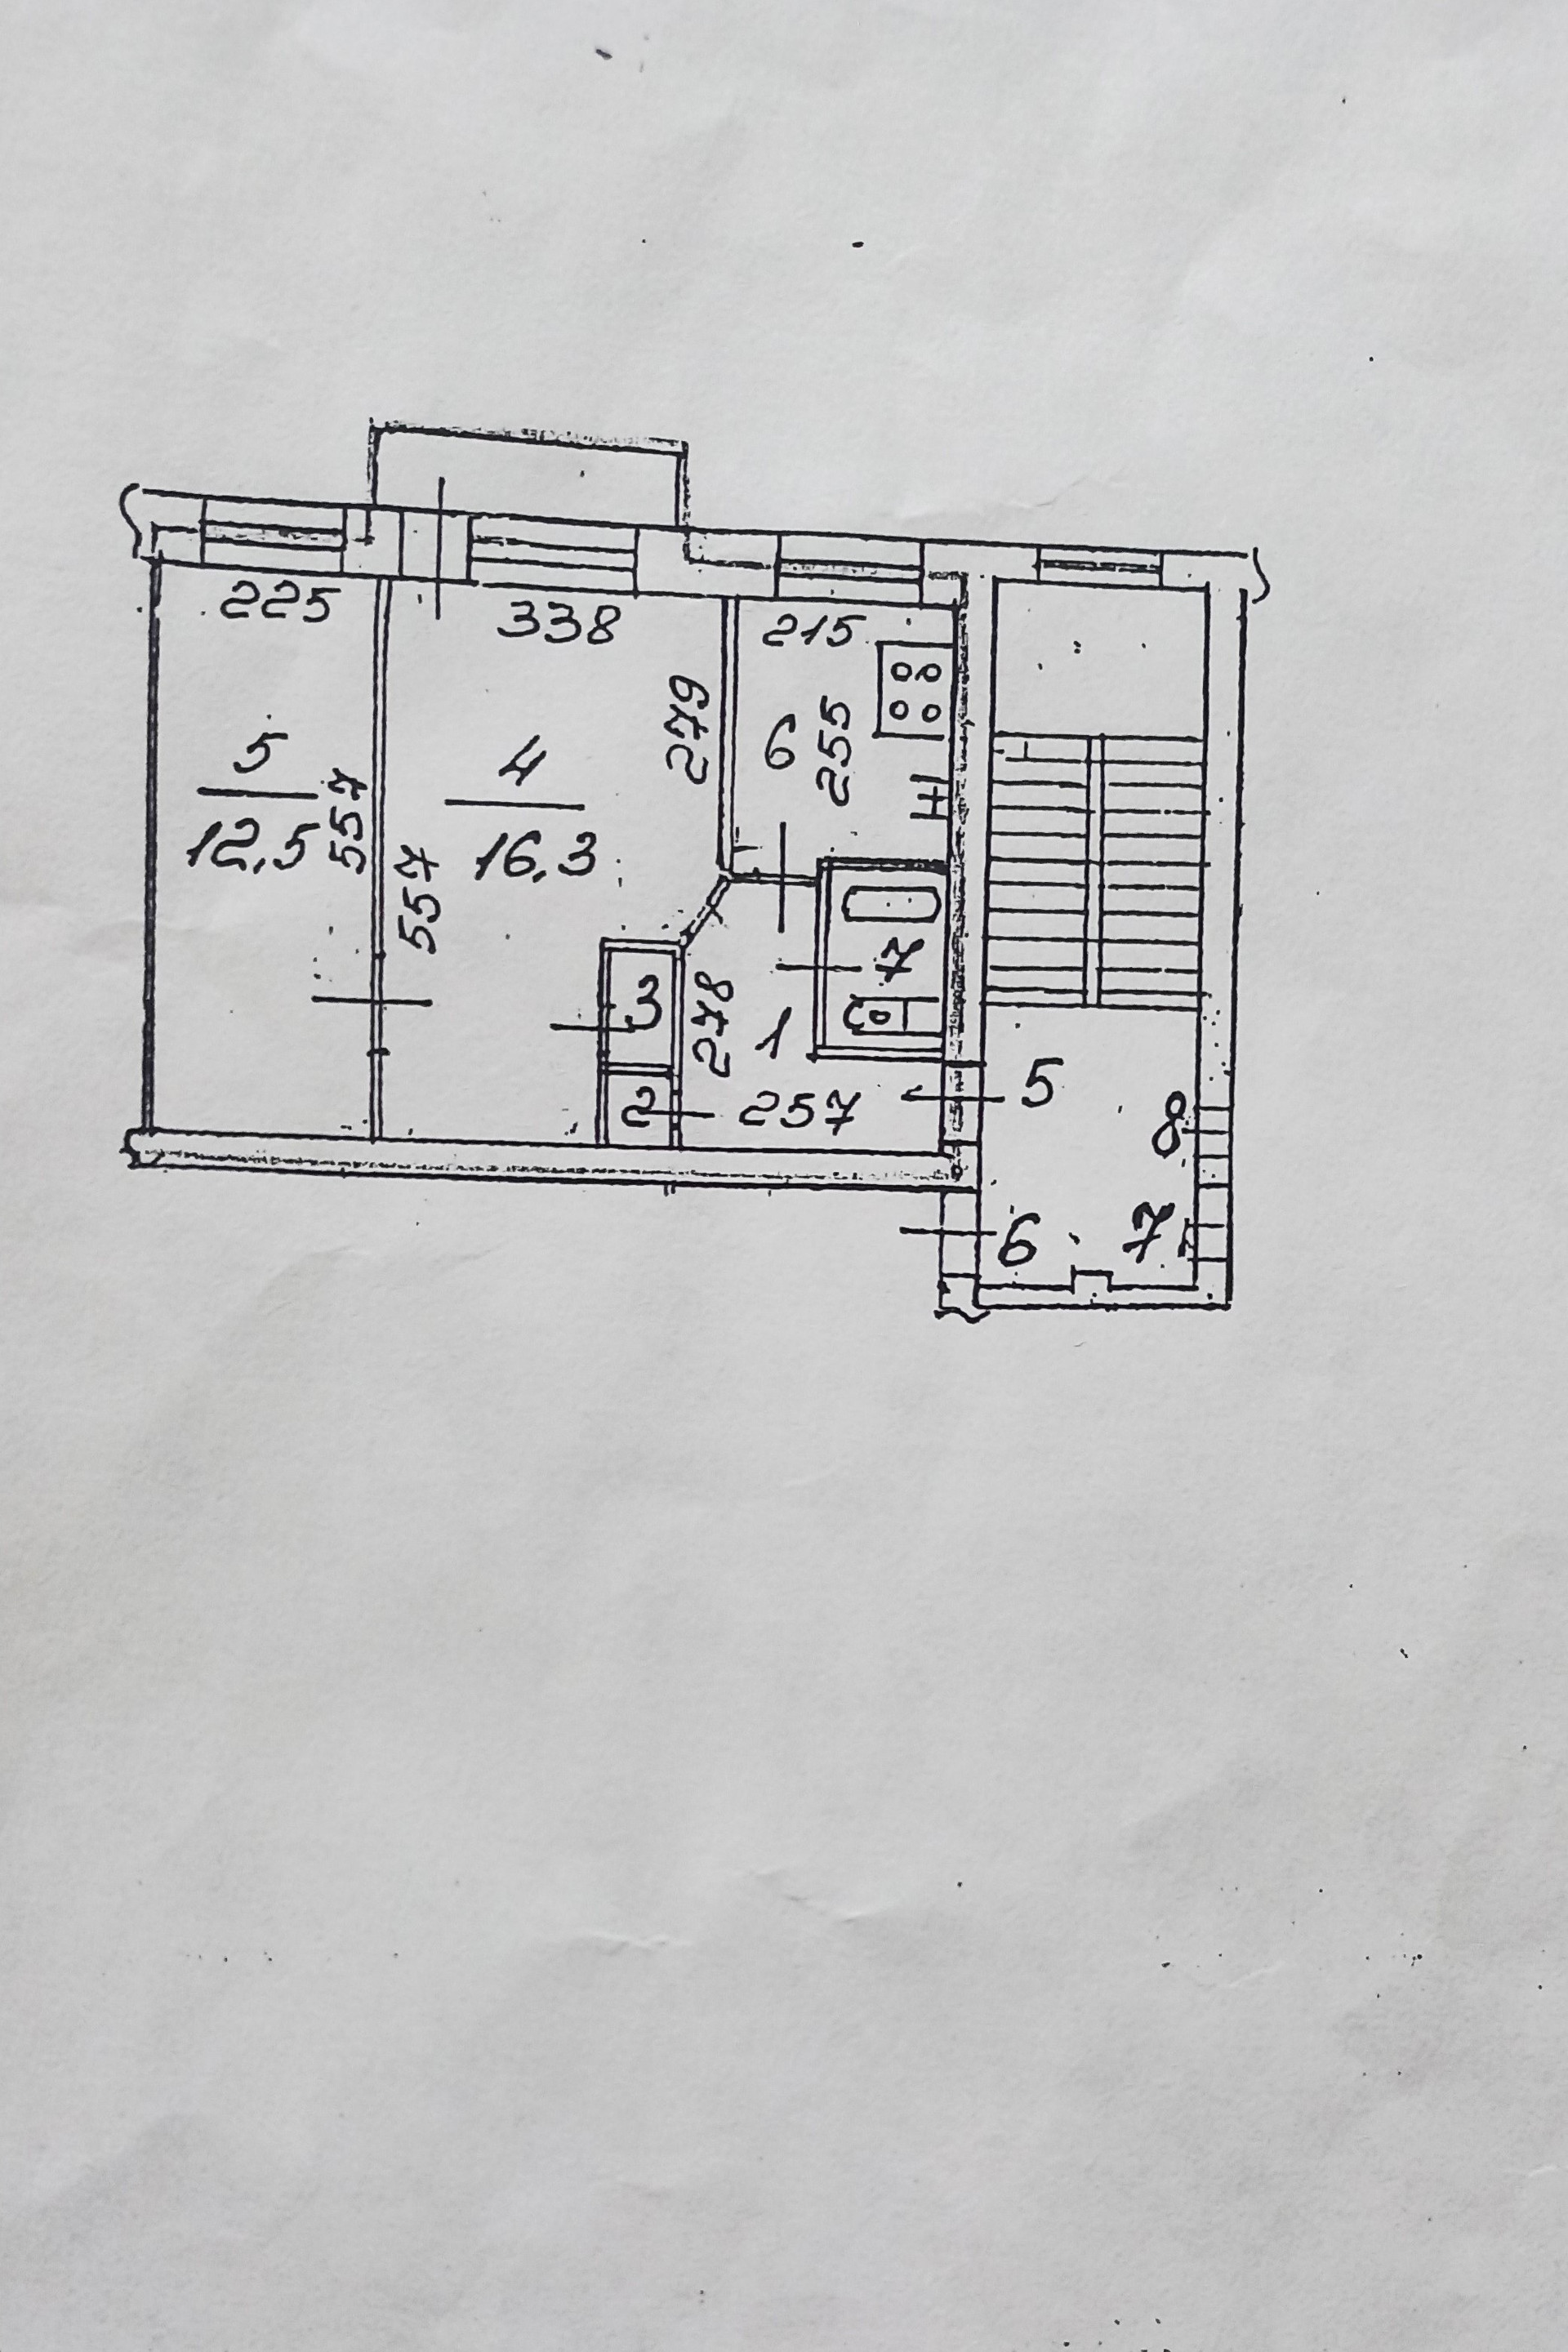 225
338
215
279
6
255
5
12,5
557
4
16,3
557
3
278
1
7
2
257
5
8
6
7